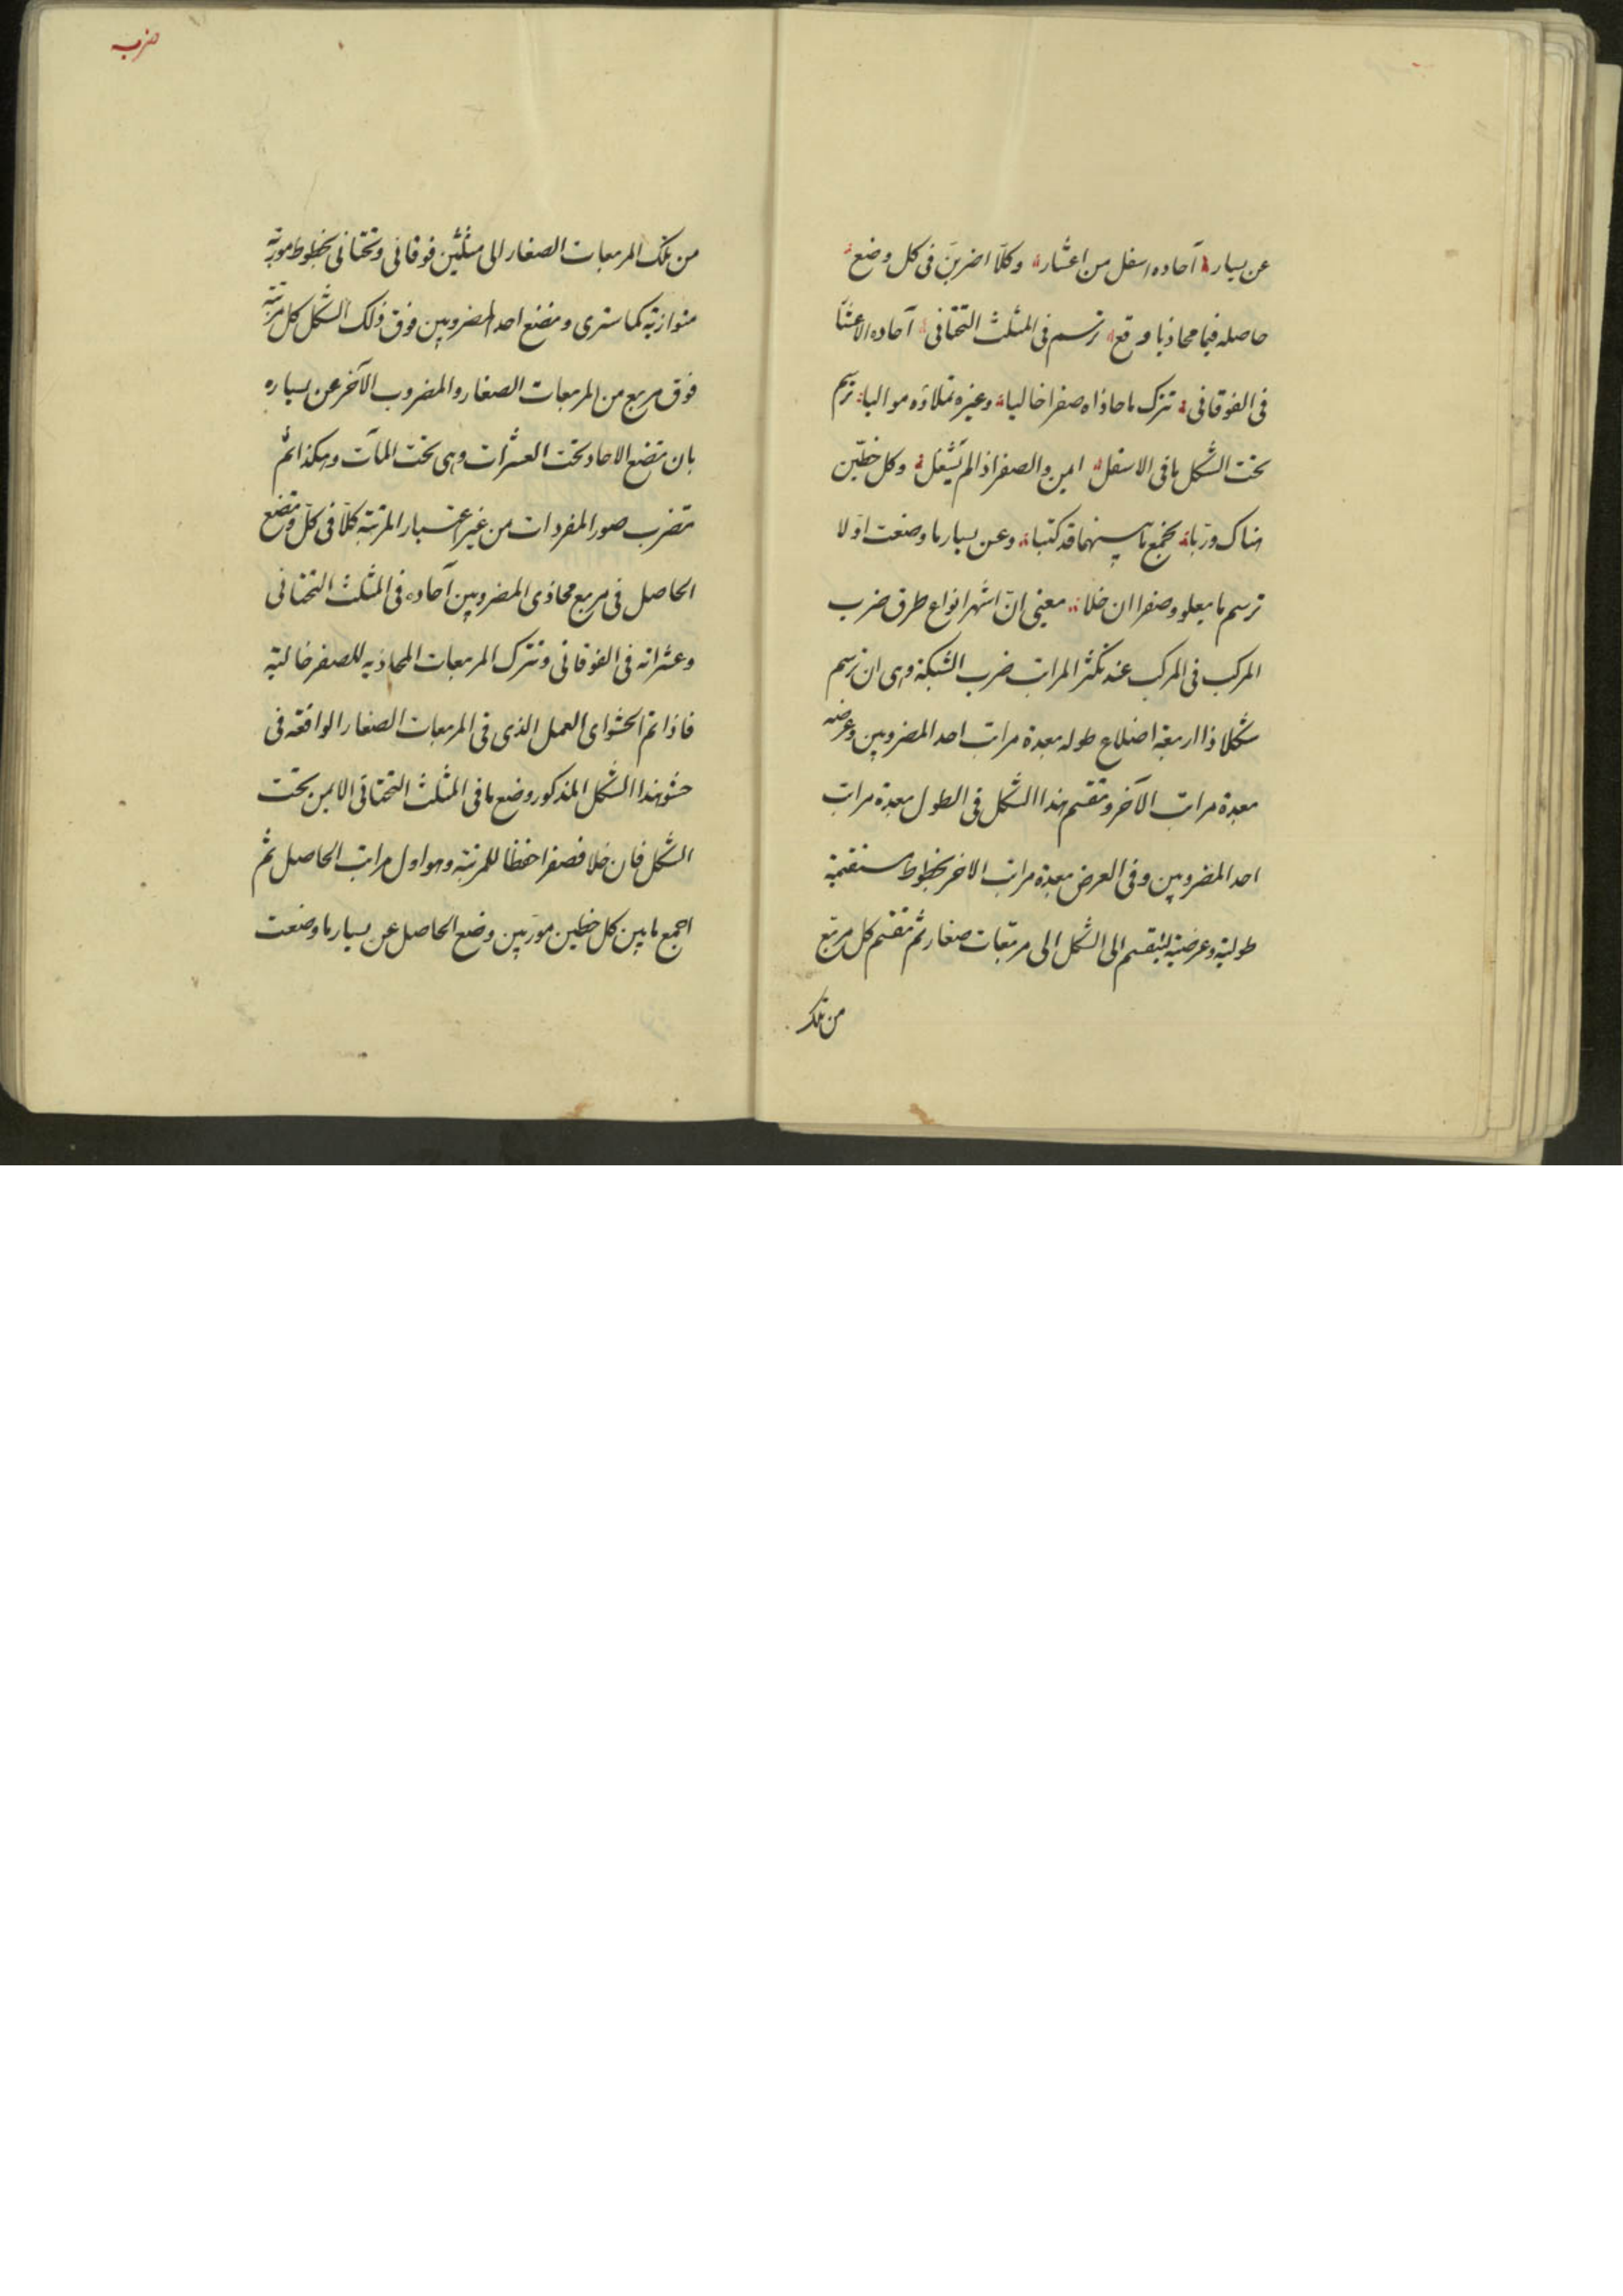 عن يسار آحاده اسفل من اعشار وكلا اضربن فى كل وضع
حاصله فيما محاذيا وقع ترسم فى المثلث التحتانى آحاده الاعشا
فى الفوقانى تترك ما حاذاه صفرا خاليا وغيره تملاؤه مواليا ترسم
تحت الشكل ما فى الاسفل ايمن والصفر اذا لم تشغل وكل خطين
هناك وربا تجمع ما بينهما قد كتبا وعن يسار ما وضعت اولا
ترسم ما يعلو وصفرا ان خلا معنى ان اشهر انواع طرق ضرب
المركب فى المركب عند تكثر المراتب ضرب الشبكة وهى ان ترسم
شكلا ذا اربعة اضلاع طوله بعدة مراتب احد المضروبين وعرضه
بعدة مراتب الآخر وتقسم هذا الشكل فى الطول بعدة مراتب
احد المضروبين وفى العرض بعدة مراتب الاخر بخطوط مستقيمة
طولية وعرضية لينقسم الى الشكل الى مربعات صغار ثم تقسم كل مربع
من تلك
ضرب
من تلك المربعات الصغار الى مثلثين فوقانى وتحتانى بخطوط موربة
متوازية كما سترى وتضع احد المضروبين فوق ذلك الشكل كل مرتبة
فوق مربع من المربعات الصغار والمضروب الآخر عن يساره
بان تضع الاحاد تحت العشرات وهى تحت المآت وهكذا ثم
تضرب صور المفردات من غير اعتبار المرتبة كلا فى كل وتضع
الحاصل فى مربع محاذى المضروبين آحاده فى المثلث التحتانى
وعشراته فى الفوقانى وتترك المربعات المحاذيه للصفر خالية
فاذا تم الحشو اى العمل الذى فى المربعات الصغار الواقعة فى
حشو هذا الشكل المذكور وضع ما فى المثلث التحتانى الايمن تحت
الشكل فان خلا فصفرا حفظا للمرتبة وهو اول مراتب الحاصل ثم
اجمع ما بين كل خطين موربين وضع الحاصل عن يسار ما وضعت